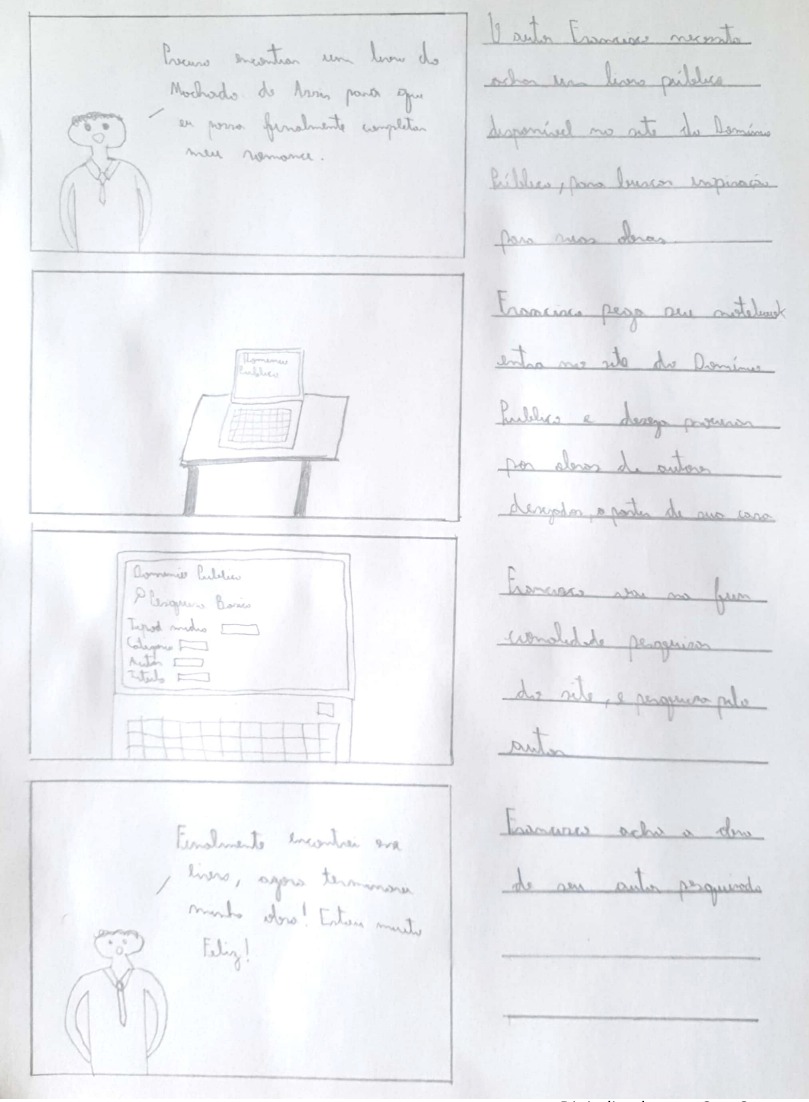 Procuro encontrar um livro do
Machado de Assis para que
eu possa finalmente completar
meu romance.
O autor Francisco necessita
achar um livro público
disponível no site do Domínio
Público, para buscar inspiração
para suas obras.
Domínio
Público
Francisco pega seu notebook
entra no site do Domínio
Público e deseja procurar
por obras de autores
desejados, a partir de sua casa
Domínio Público
Pesquisa Básica
Tipo d mídia
Categoria
Autor
Título
Francisco vai na fun
cionalidade pesquisar
do site, e pesquisa pelo
autor
Finalmente encontrei esse
livro, agora terminarei
minha obra! Estou muito
Feliz!
Francisco acha a obra
de seu autor pesquisado